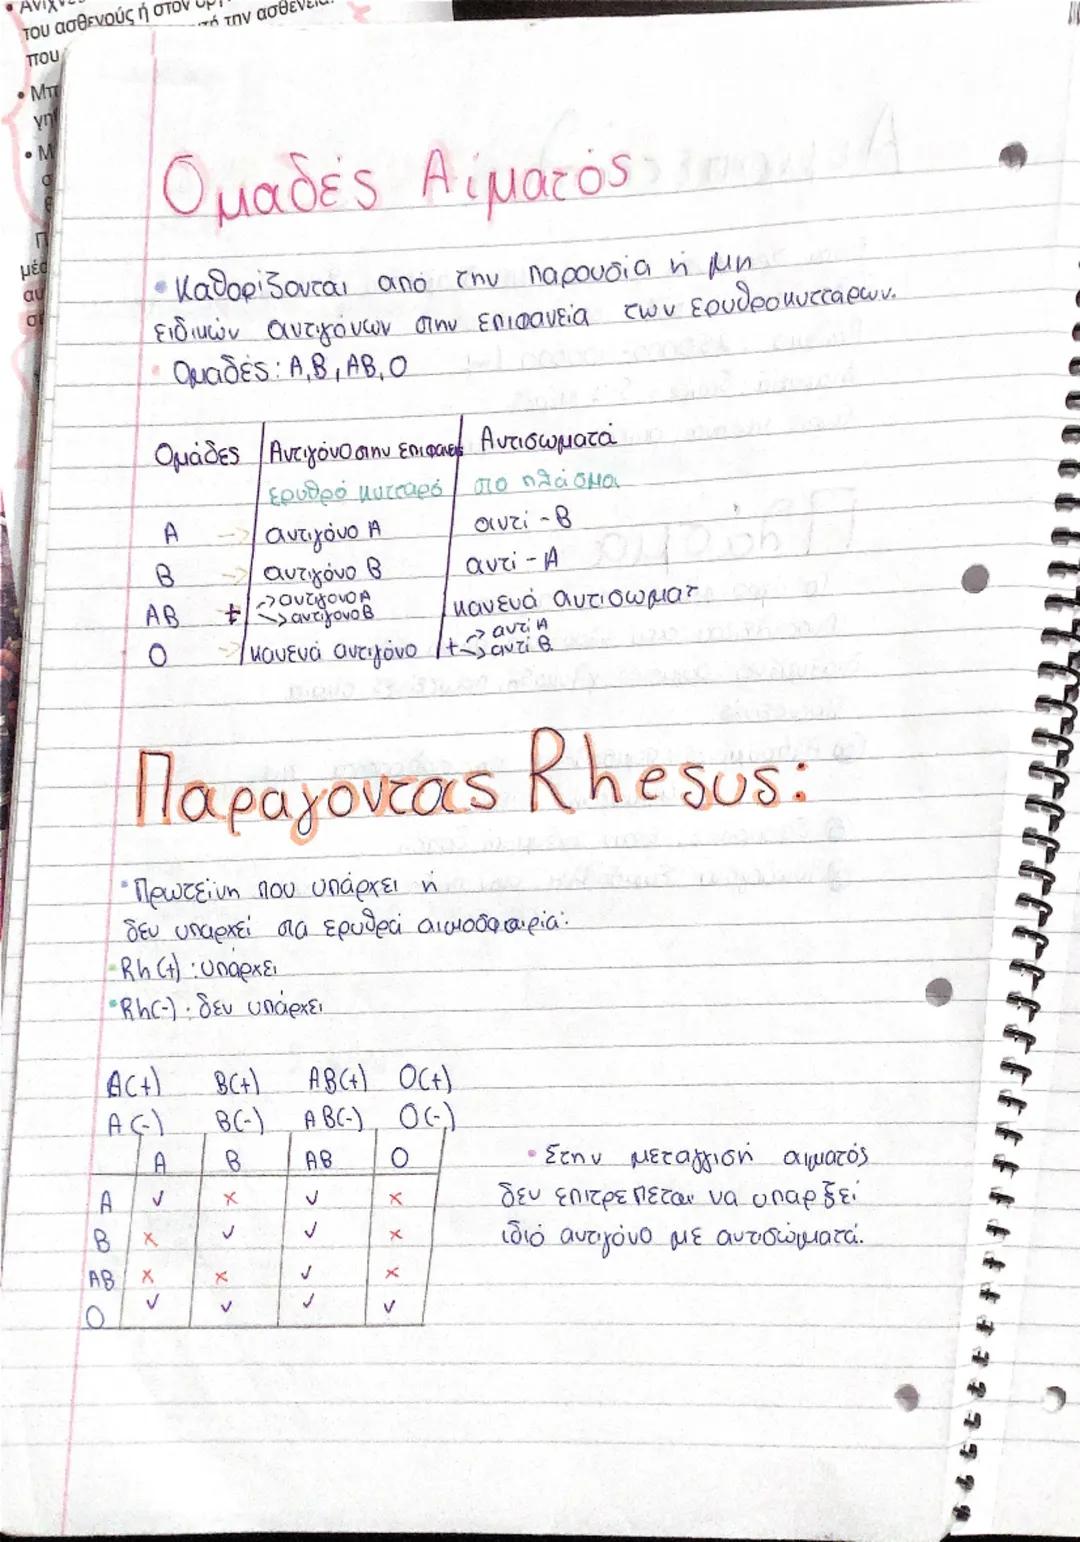 του ασθενούς ή στον
την ασθένεια.
που
• Μπ
• Μ
Ομαδές Αίματός
• Καθορίζονται από την παρουσία ή μη
ειδικών αντιγόνων στην επιφανεία των ερυθροκυττάρων.
• Ομαδές: Α, Β, ΑΒ, Ο
Ομάδες Αντιγόνο στην επιφανεια Αντισωματά
ερυθρό κυτταρό στο πλάσμα
Α → αντιγόνο Α αντί - Β
Β → αντιγόνο Β αντί - Α
ΑΒ + → αντιγονο Α → αντιγονο Β κανενά αντισωματ
Ο → κανενά αντιγόνο + → αντί Α → αντί Β
Παραγοντας Rhesus:
• Πρωτείνη που υπάρχει ή
δεν υπαρχεί στα ερυθρά αιμοσφαιρία:
• Rh (+) : υπάρχει
• Rh(-) : δεν υπάρχει
Α(+) Β(+) ΑΒ(+) Ο(+)
Α(-) Β(-) ΑΒ(-) Ο(-)
Α Β ΑΒ Ο
Α ✓ × ✓ ×
Β × ✓ ✓ ×
ΑΒ × × ✓ ×
Ο ✓ ✓ ✓ ✓
• Στην μεταγγισή αιματός
δεν επιτρεπεται να υπαρξεί
ίδιό αντιγόνο με αντισώματά.